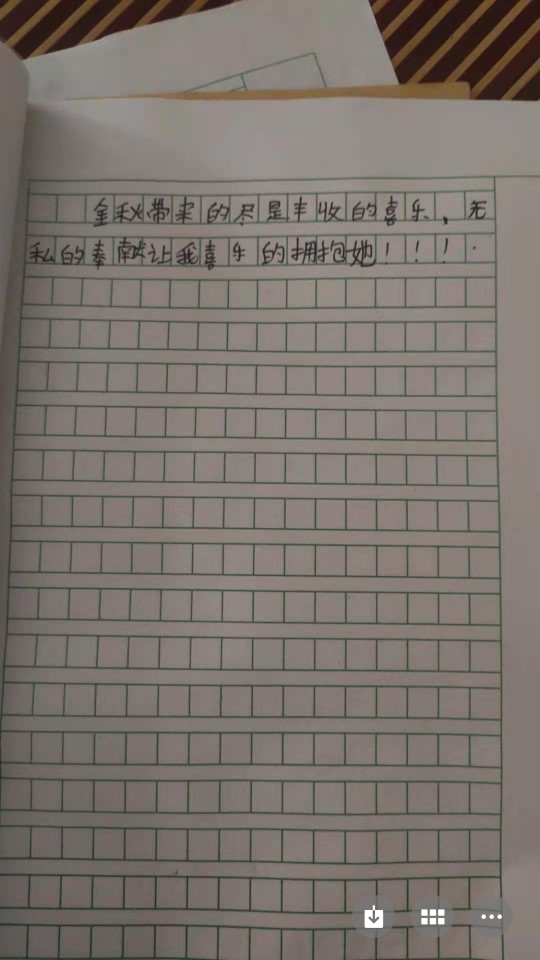 金秋带来的尽是丰收的喜乐，无
私的奉献让我喜乐的拥抱她！！！